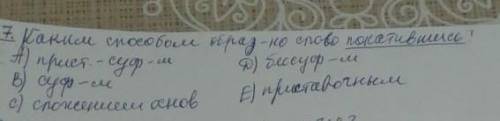 7. Каким способом образ-но слово покатившись?
А) прист.-суф-м D) бессуф-м
В) суф-м
С) сложением основ E) приставочным